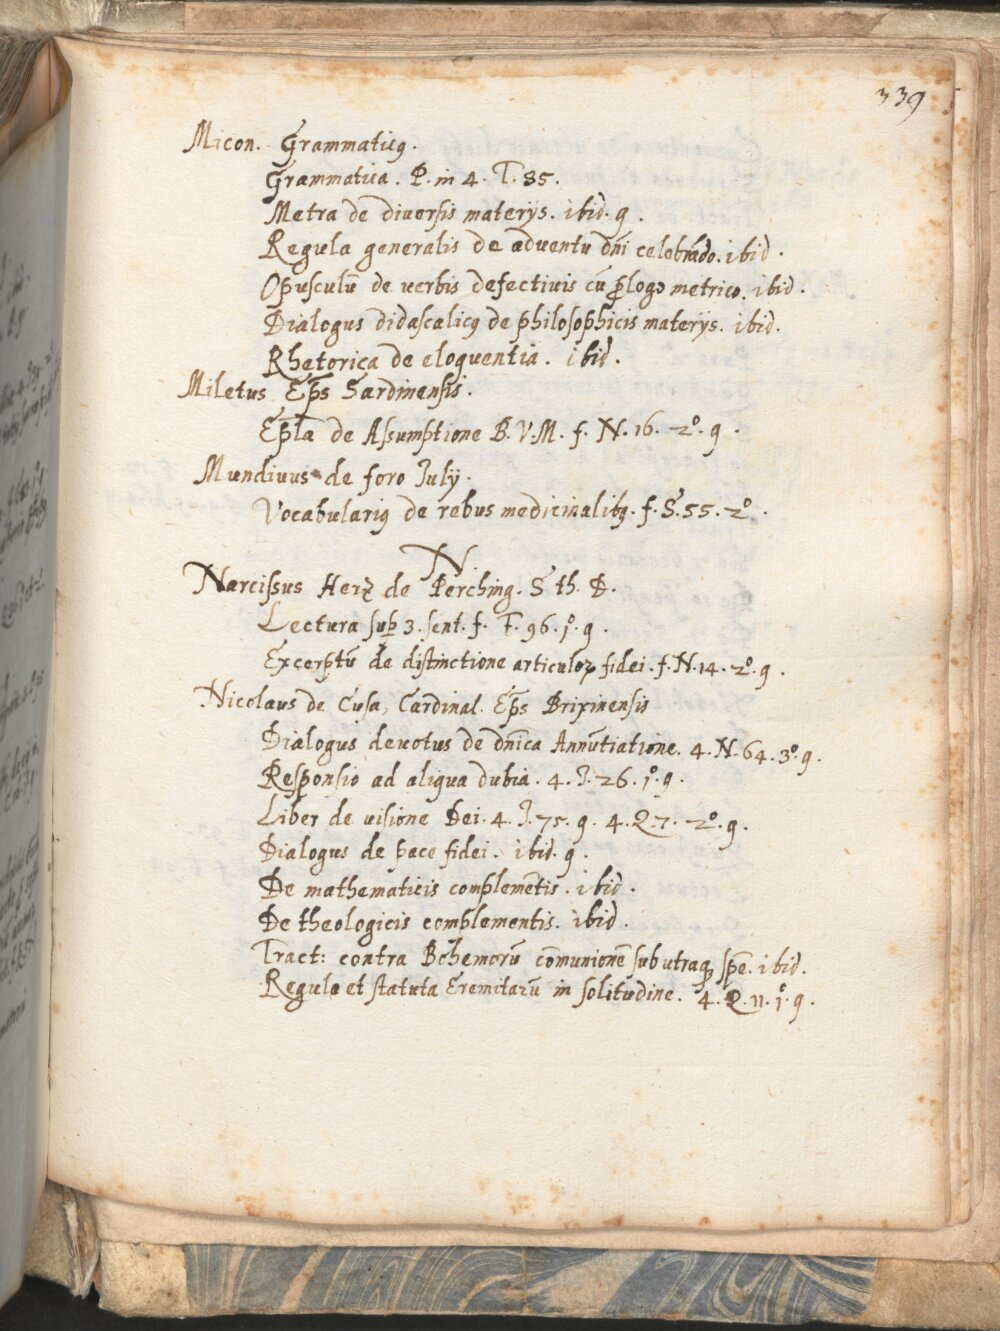 339
Micon. Grammaticꝯ.
Grammatica. P. in 4. T. 35.
Metra de diuersis materijs. ibid. 9.
Regula generalis de aduentu dn̄i celebrādo. ibid.
Opusculū de verbis defectiuis cū ꝓlogo metrico. ibid.
Dialogus didascalicꝯ de philosophicis materijs. ibid.
Rhetorica de eloquentia. ibid.
Miletus Ep̄s Sardinensis.
Ep̄la de Assumptione B. V. M. f. N. 16. 2º. 9.
Mundinus de foro Julij.
Vocabulariꝯ de rebus medicinalibꝫ. f. S. 55. 2º.
N.
Narcissus Herz de Perching. S. th. D.
Lectura suꝑ 3. sent. f. F. 96. 1º. 9.
Excerptū de distinctione articuloꝝ fidei. f. N. 14. 2º. 9.
Nicolaus de Cusa, Cardinal. Ep̄s Brixinensis
Dialogus deuotus de dn̄ica Annūtiatione. 4. N. 64. 3º. 9.
Responsio ad aliqua dubia. 4. J. 26. 1º. 9.
Liber de visione Dei. 4. J. 75. 9. 4. Q. 7. 2º. 9.
Dialogus de pace fidei. ibid. 9.
De mathematicis complemētis. ibid.
De theologicis complementis. ibid.
Tract: contra Bohemorū cōmunionē sub utraqꝫ sp̄e. ibid.
Regula et statuta Eremitarū in solitudine. 4. Q. 11. 1º. 9.